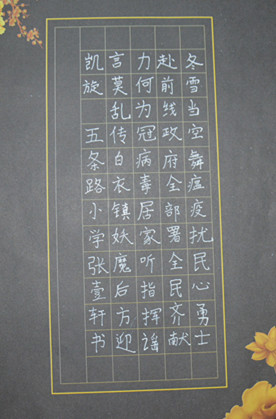 冬雪当空舞瘟疫扰民心勇士
赴前线政府全部署全民齐献
力何为冠病毒居家听指挥谣
言莫乱传白衣镇妖魔后方迎
凯旋 五条路小学张壹轩书